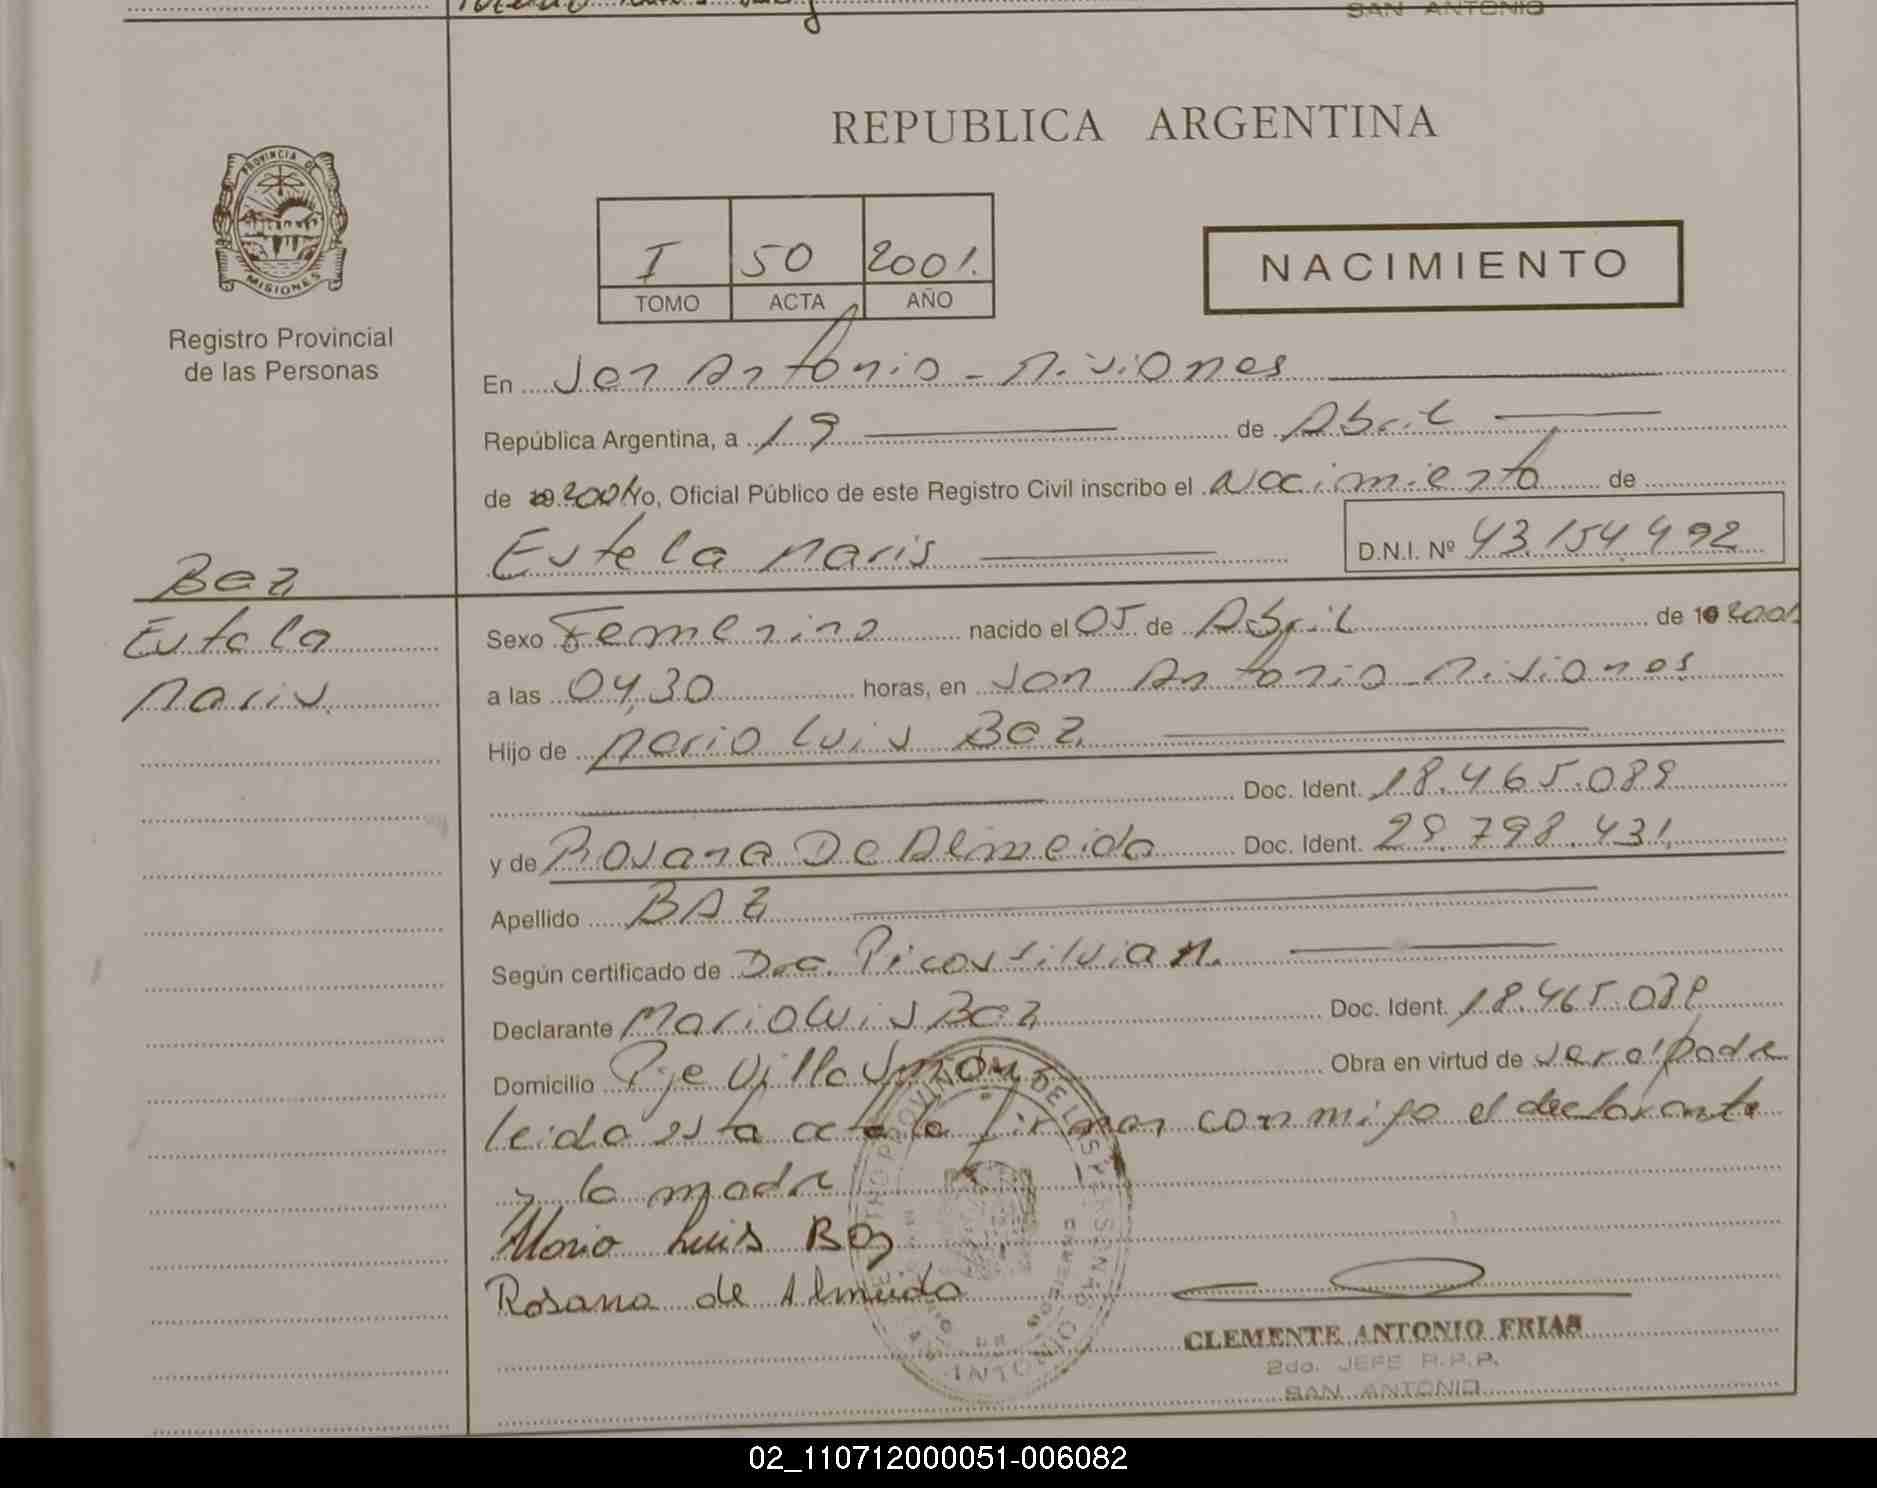 SAN ANTONIO
REPUBLICA ARGENTINA
PROVINCIA DE
MISIONES
Registro Provincial
de las Personas
I 50 2001.
TOMO ACTA AÑO
NACIMIENTO
En San Antonio - Misiones
República Argentina, a 19 de Abril
de 19 2001 Yo, Oficial Público de este Registro Civil inscribo el Nacimiento de
Estela Maris D.N.I. Nº 43.154.492
Baz
Estela
Maris.
Sexo Femenino nacido el 05 de Abril de 19 2001
a las 04,30 horas, en San Antonio - Misiones
Hijo de Mario Luis Baz
Doc. Ident. 18.465.089
y de Rosana De Almeida Doc. Ident. 29.798.431.
Apellido BAZ
Según certificado de Dra. Picos Silvia M.
Declarante Mario Luis Baz Doc. Ident. 18.465.089
Domicilio Pje Villa Unión Obra en virtud de ser el padre
leida esta acta la firman conmigo el declarante
y la madre
Mario Luis Baz
Rosana de Almeida
CLEMENTE ANTONIO FRIAS
2do. JEFE R.P.P.
SAN ANTONIO
02_110712000051-006082